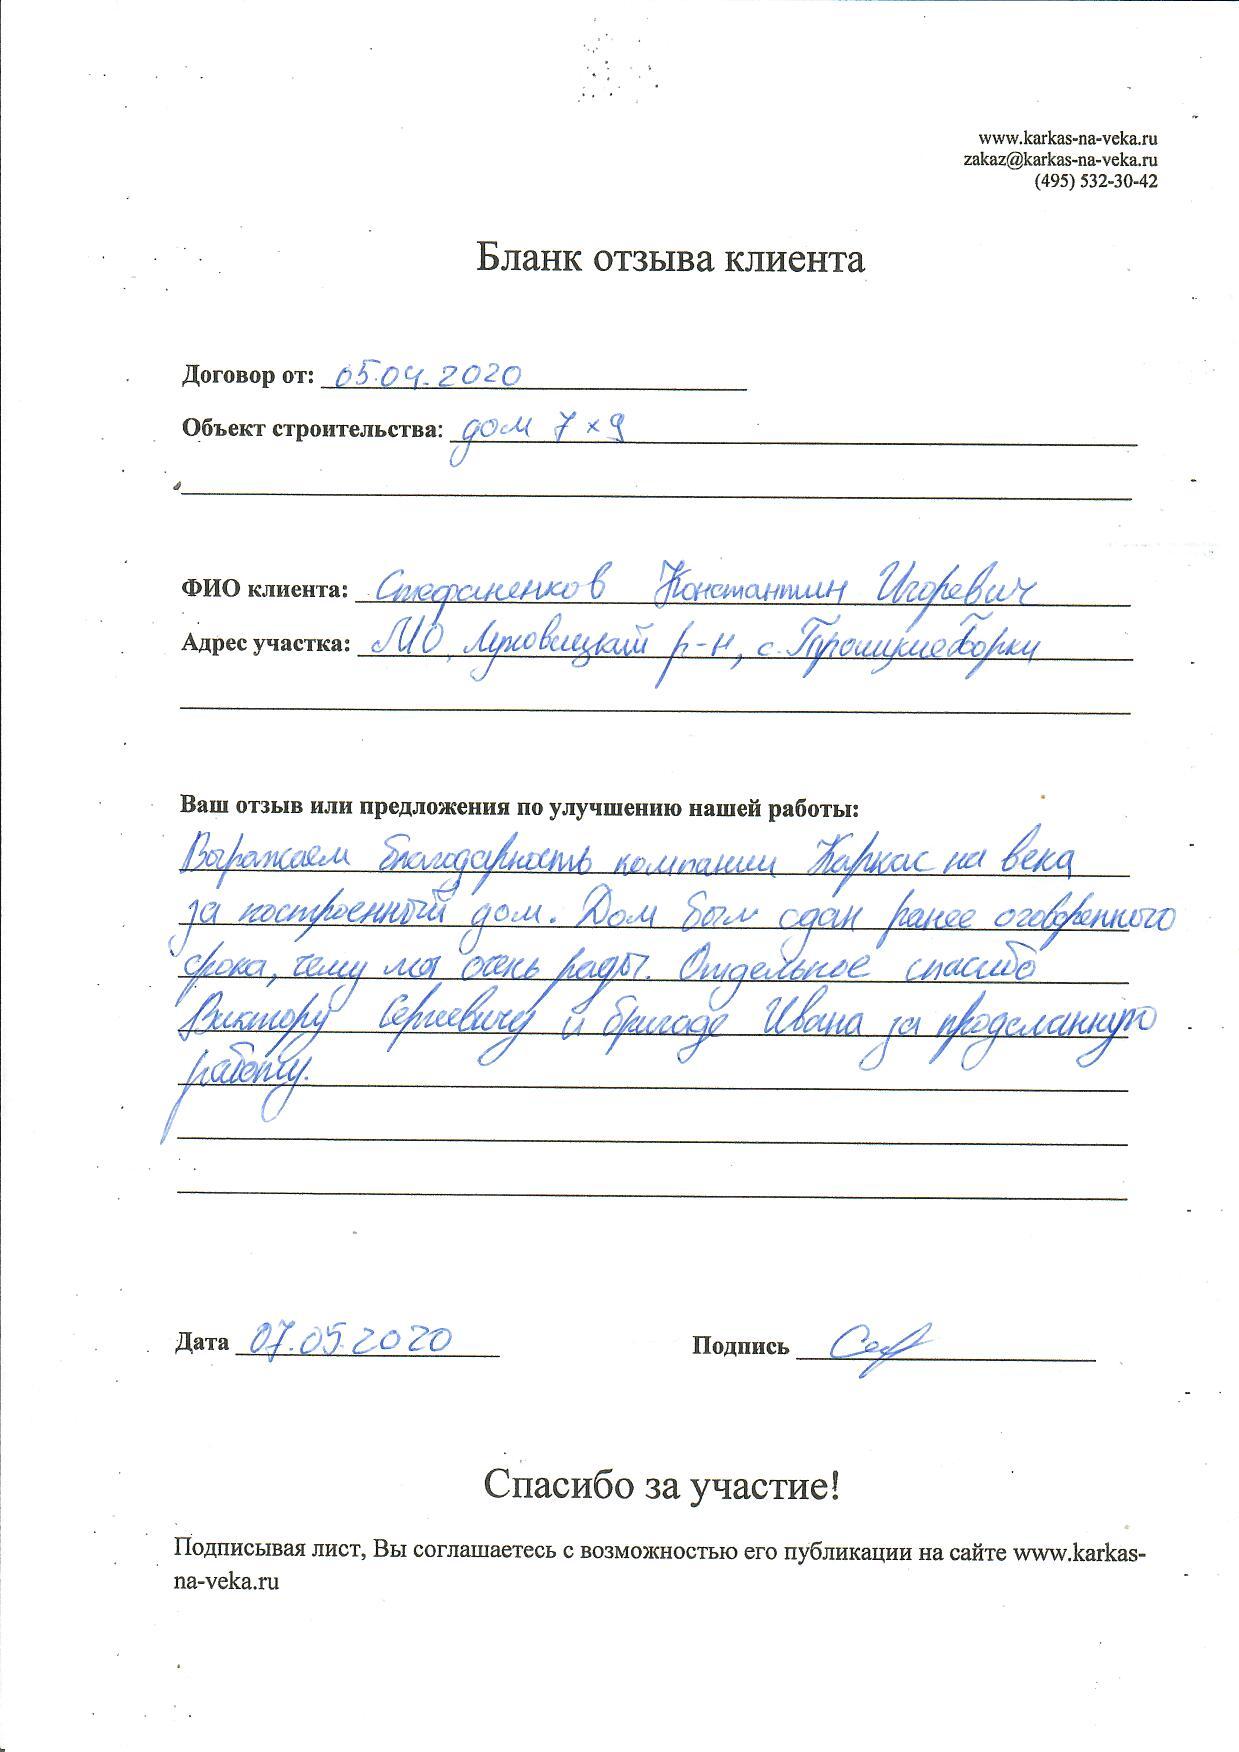 www.karkas-na-veka.ru
zakaz@karkas-na-veka.ru
(495) 532-30-42
Бланк отзыва клиента
Договор от: 05.04.2020
Объект строительства: дом 7×9
ФИО клиента: Стефаненков Константин Игоревич
Адрес участка: МО, Луховицкий р-н, с. Троицкие Борки
Ваш отзыв или предложения по улучшению нашей работы:
Выражаем благодарность компании Каркас на века
за построенный дом. Дом был сдан ранее оговоренного
срока, чему мы очень рады. Отдельное спасибо
Виктору Сергеевичу и бригаде Ивана за проделанную
работу.
Дата 07.05.2020 Подпись
Спасибо за участие!
Подписывая лист, Вы соглашаетесь с возможностью его публикации на сайте www.karkas-
na-veka.ru